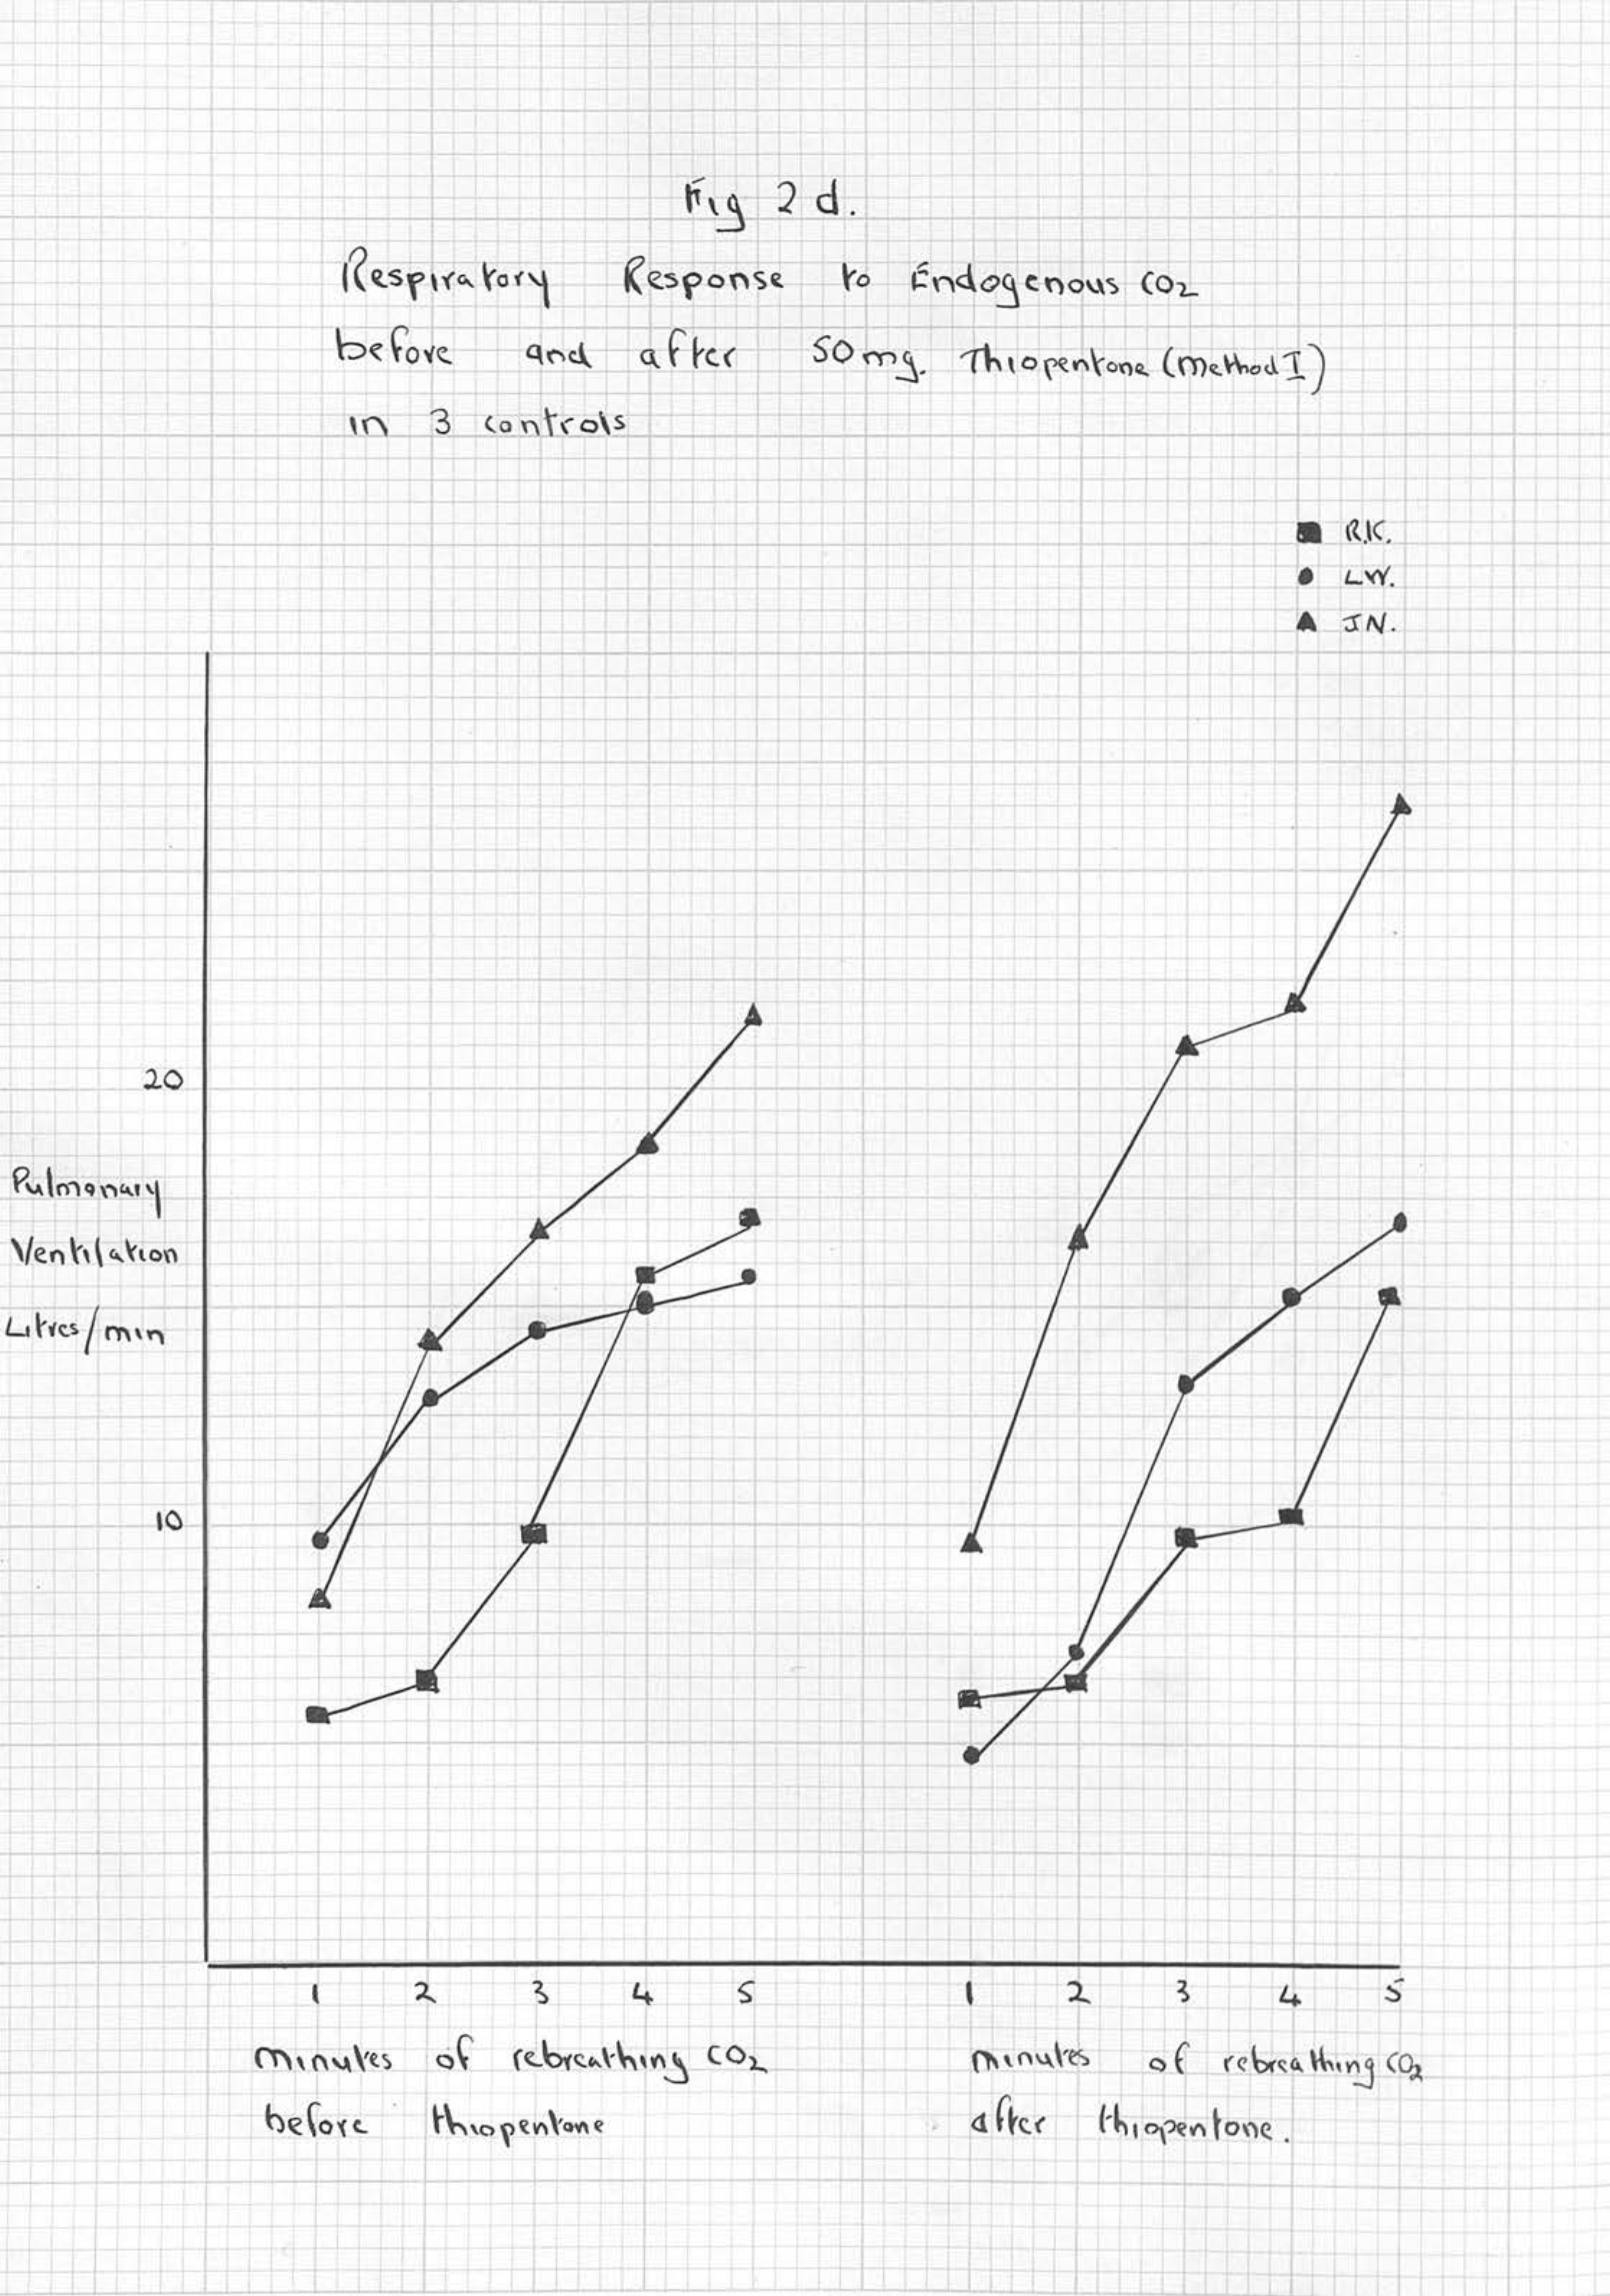 Fig 2 d.
Respiratory Response to Endogenous CO2
before and after 50mg. Thiopentone (Method I)
in 3 controls
R.K.
L.W.
J.N.
20
Pulmonary
Ventilation
Litres/min
10
1 2 3 4 5 1 2 3 4 5
minutes of rebreathing CO2
before thiopentone
minutes of rebreathing CO2
after thiopentone.